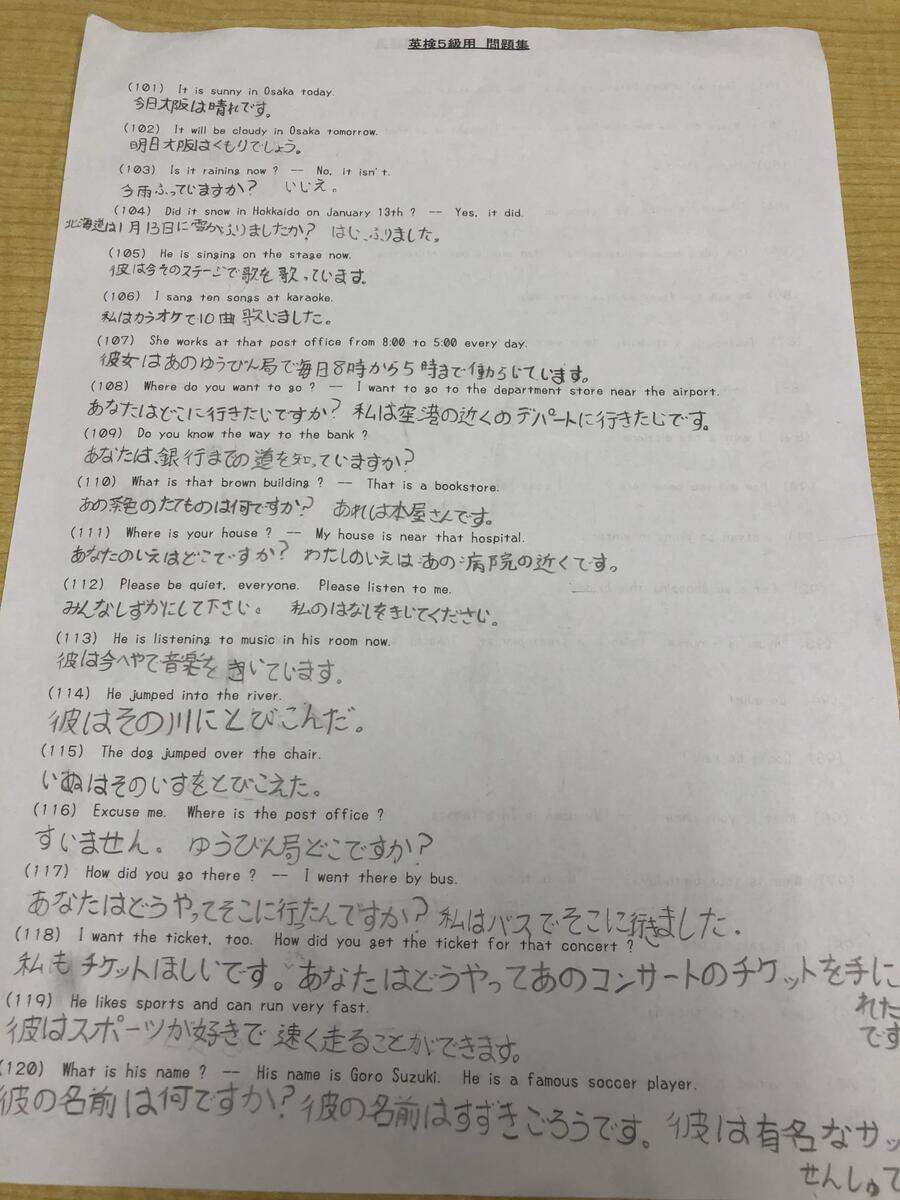 英検5級用 問題集
(101) It is sunny in Osaka today.
今日大阪は晴れです。
(102) It will be cloudy in Osaka tomorrow.
明日大阪はくもりでしょう。
(103) Is it raining now ? -- No, it isn't.
今雨ふっていますか? いいえ。
(104) Did it snow in Hokkaido on January 13th ? -- Yes, it did.
北海道は1月13日に雪がふりましたか? はい、ふりました。
(105) He is singing on the stage now.
彼は今そのステージで歌を歌っています。
(106) I sang ten songs at karaoke.
私はカラオケで10曲歌いました。
(107) She works at that post office from 8:00 to 5:00 every day.
彼女はあのゆうびん局で毎日8時から5時まで働らいています。
(108) Where do you want to go ? -- I want to go to the department store near the airport.
あなたはどこに行きたいですか? 私は空港の近くのデパートに行きたいです。
(109) Do you know the way to the bank ?
あなたは、銀行までの道を知っていますか?
(110) What is that brown building ? -- That is a bookstore.
あの茶色のたてものは何ですか? あれは本屋さんです。
(111) Where is your house ? -- My house is near that hospital.
あなたのいえはどこですか? わたしのいえはあの病院の近くです。
(112) Please be quiet, everyone. Please listen to me.
みんなしずかにして下さい。 私のはなしをきいてください。
(113) He is listening to music in his room now.
彼は今へやで音楽をきいています。
(114) He jumped into the river.
彼はその川にとびこんだ。
(115) The dog jumped over the chair.
いぬはそのいすをとびこえた。
(116) Excuse me. Where is the post office ?
すいません。 ゆうびん局どこですか?
(117) How did you go there ? -- I went there by bus.
あなたはどうやってそこに行ったんですか? 私はバスでそこに行きました.
(118) I want the ticket, too. How did you get the ticket for that concert ?
私もチケットほしいです。あなたはどうやってあのコンサートのチケットを手に
れた
です
(119) He likes sports and can run very fast.
彼はスポーツが好きで速く走ることができます。
(120) What is his name ? -- His name is Goro Suzuki. He is a famous soccer player.
彼の名前は何ですか? 彼の名前はすずきごろうです。 彼は有名なサッ
せんしゅで